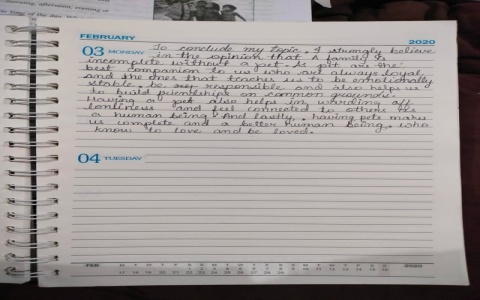 FEBRUARY 2020
03 MONDAY To conclude my topic, I strongly believe
in the opinion that A family is
incomplete without a pet. As pet are the
best companion to us who are always loyal
and the ones that teaches us to be emotionally
stable, be responsible and also helps us
to build friendships on common grounds.
Having a pet also helps in warding off
lonliness and feel connected to others as
a human being. And lastly, having pets makes
us complete and a better human being, who
know to love and be loved.
04 TUESDAY
FEB 2020